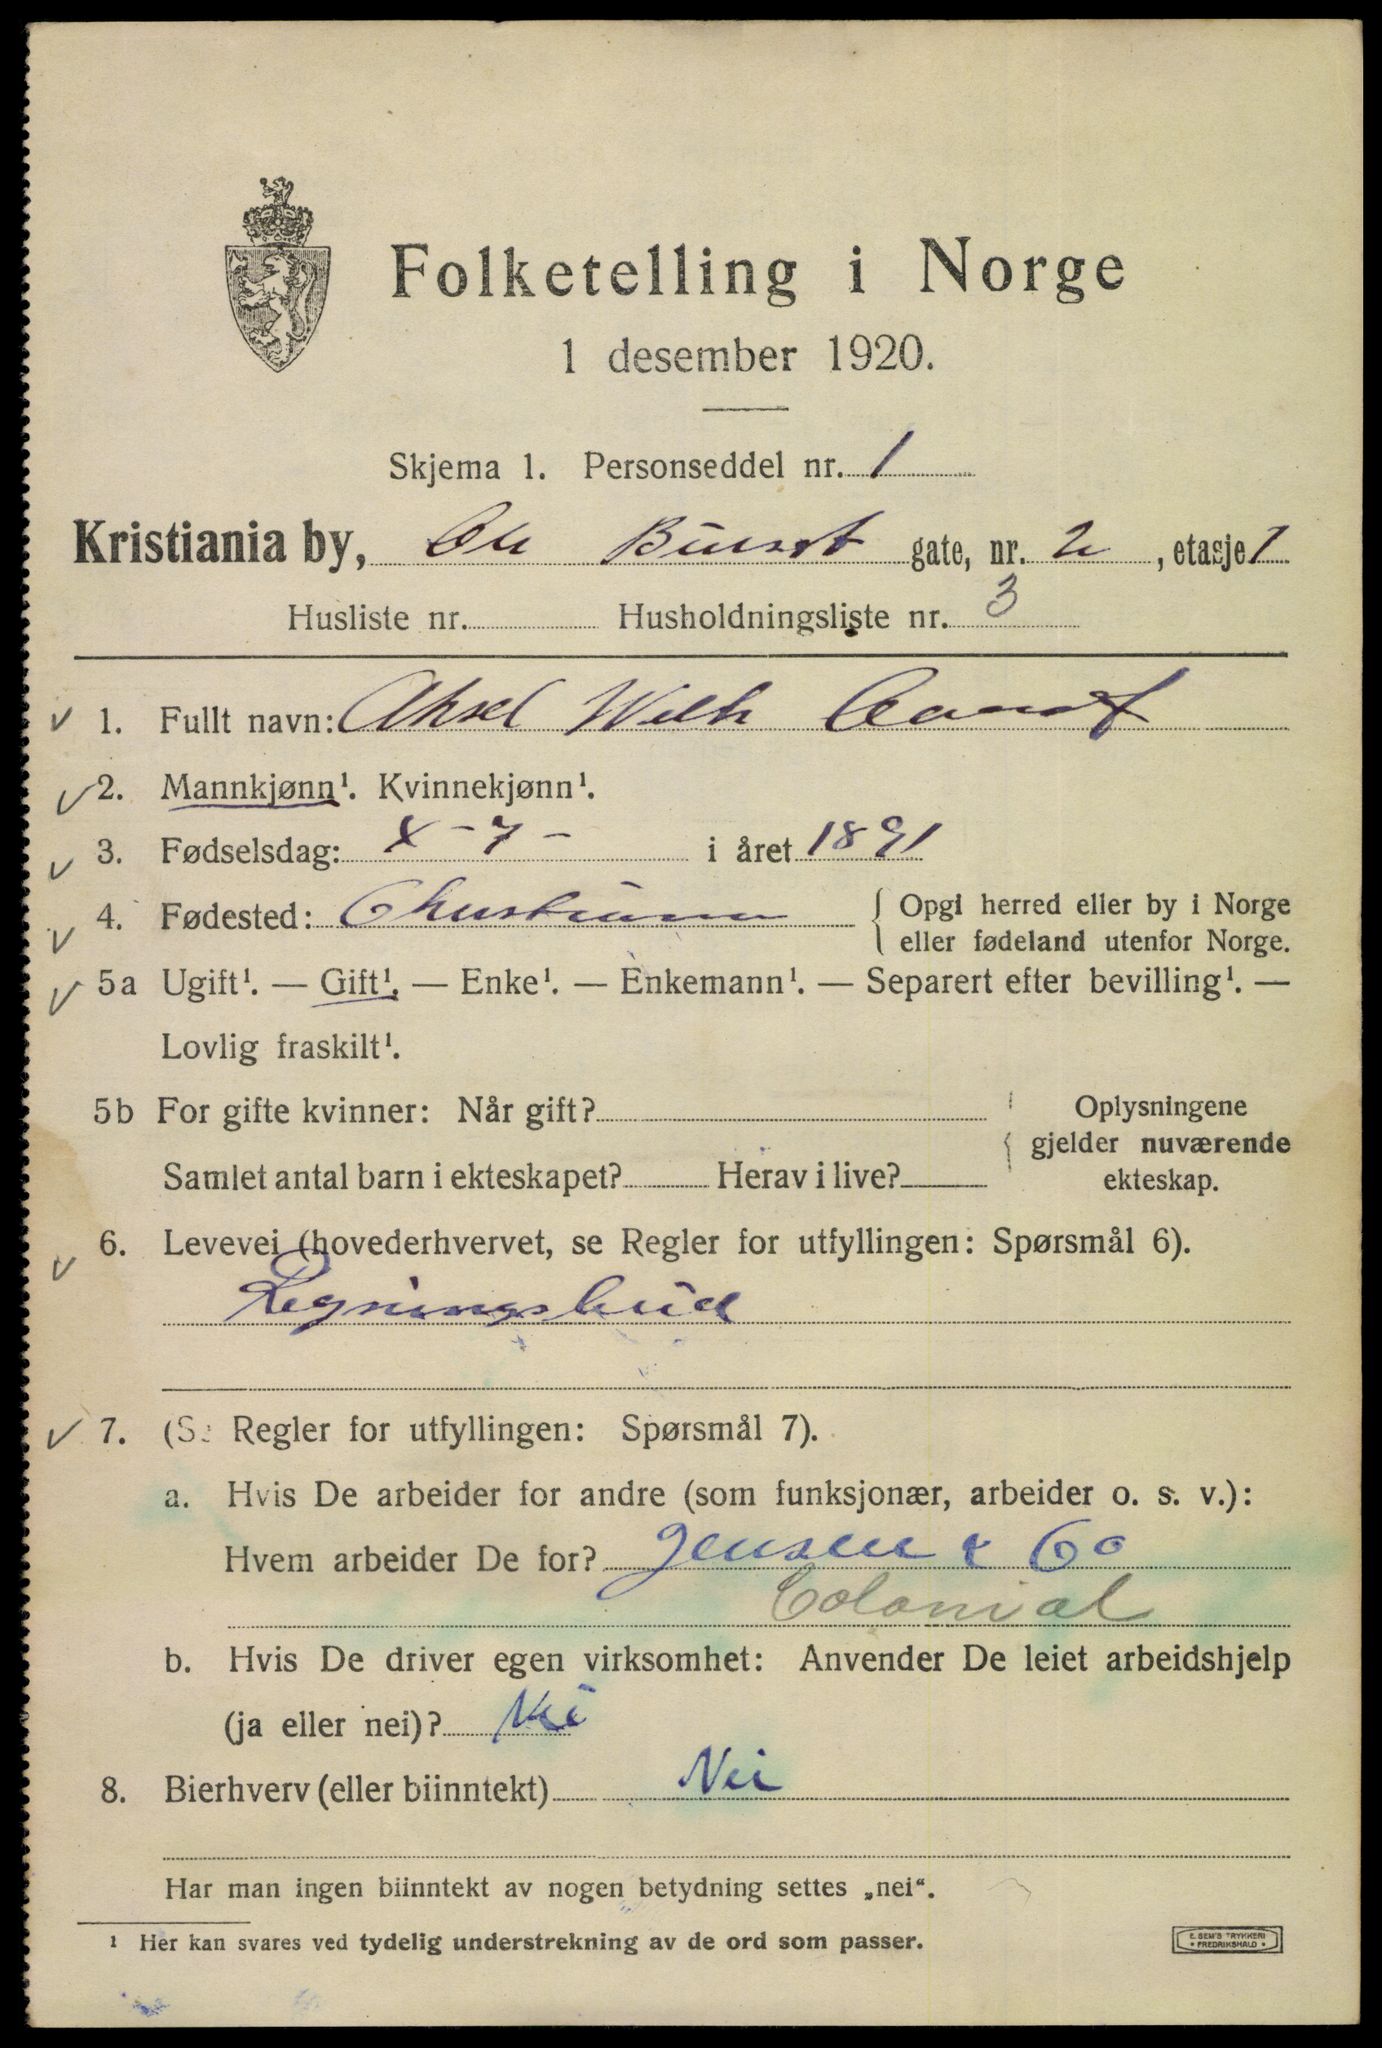 Folketelling i Norge
1 desember 1920.
Skjema 1. Personseddel nr. 1
Kristiania by, Ole Bulls gate, nr. 2, etasje 1
Husliste nr. Husholdningsliste nr. 3
1. Fullt navn: Aksel Wilh
2. Mannkjønn¹. Kvinnekjønn¹.
3. Fødselsdag: X-7- i året 1891
4. Fødested: Christiania { Opgi herred eller by i Norge
eller fødeland utenfor Norge.
5a Ugift¹. — Gift¹. — Enke¹. — Enkemann¹. — Separert efter bevilling¹. —
Lovlig fraskilt¹.
5b For gifte kvinner: Når gift? Oplysningene
gjelder nuværende
Samlet antal barn i ekteskapet? Herav i live? ekteskap.
6. Levevei (hovederhvervet, se Regler for utfyllingen: Spørsmål 6).
Regningsbud
7. (Se Regler for utfyllingen: Spørsmål 7).
a. Hvis De arbeider for andre (som funksjonær, arbeider o. s. v.):
Hvem arbeider De for? Jensen & Co
Colonial
b. Hvis De driver egen virksomhet: Anvender De leiet arbeidshjelp
(ja eller nei)? Nei
8. Bierhverv (eller biinntekt) Nei
Har man ingen biinntekt av nogen betydning settes „nei“.
¹ Her kan svares ved tydelig understrekning av de ord som passer.
E. SEM'S TRYKKERI
• FREDRIKSHALD •